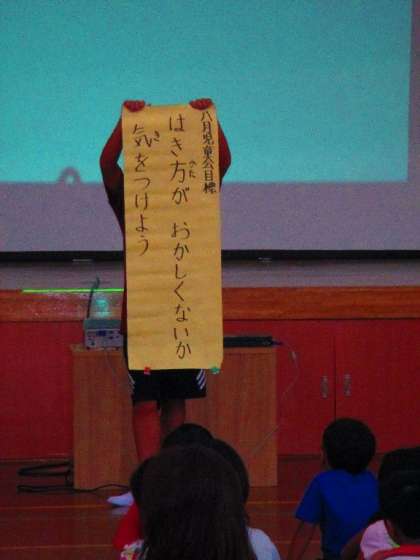 八月児童会目標
はき方がおかしくないか
気をつけよう
かた
き